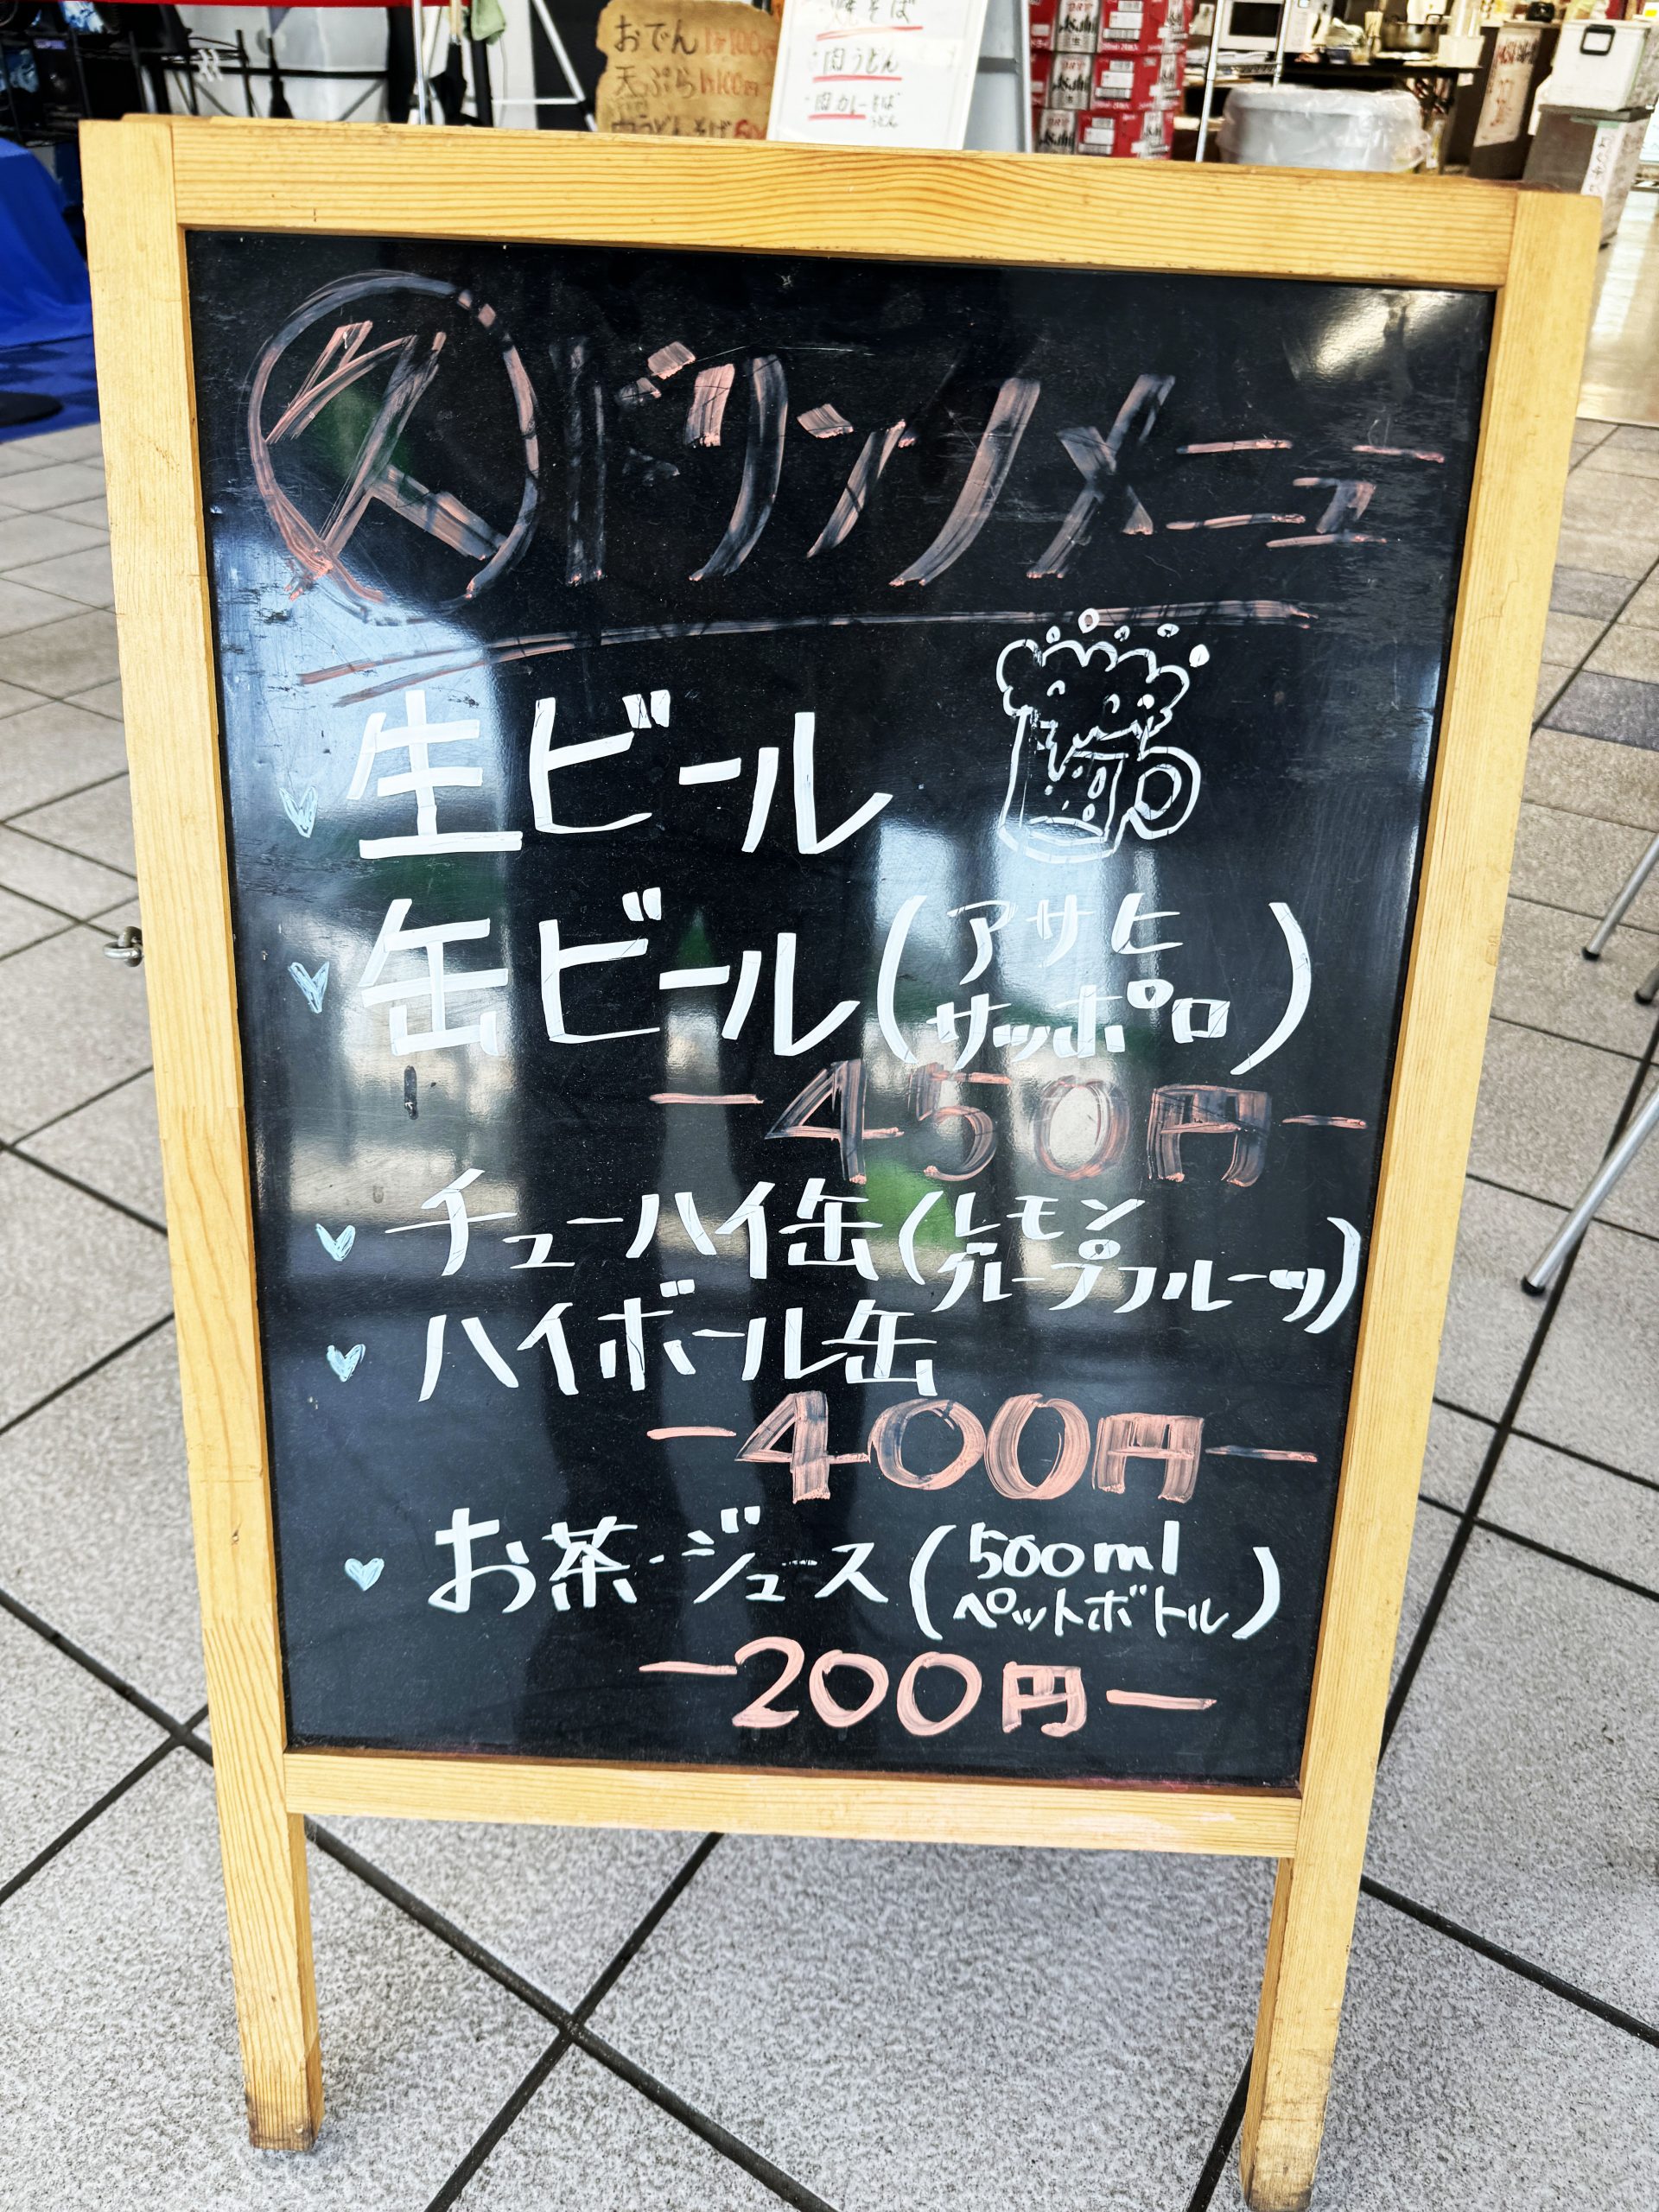 おでん 1ヶ100円
天ぷら 1ヶ100円
焼そば
肉うどん
肉カレーそば
うどん
Asahi
ス ドリンクメニュー
生ビール
缶ビール(アサヒ
サッポロ)
-450円-
チューハイ缶(レモン
グレープフルーツ)
ハイボール缶
-400円-
お茶・ジュース(500ml
ペットボトル)
-200円-